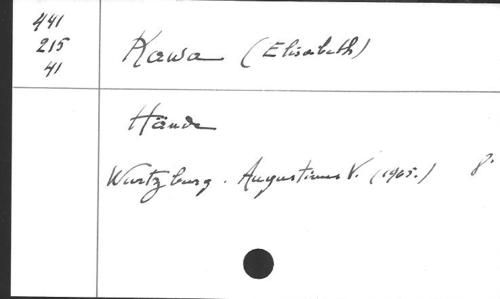 441
215
41
Kawa (Elisabeth)
Hände
Wurtzburg. Augustinus V. (1965.) 8°